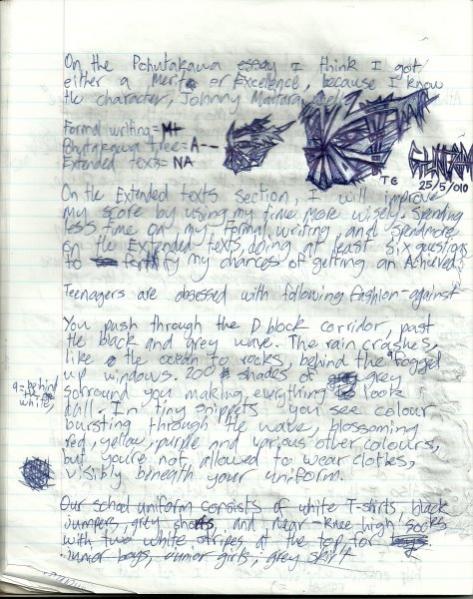 On the Pohutakawa essay I think I got
either a Merit or Excelence, because I know
the character, Johnny
Formal writing = M+
Phutakawa tree = A--
Extended texts = NA
TC
GUNDAM
25/5/010
On the Extended texts section, I will improve
my score by using my time more wisely. Spending
less time on my formal writing, and spend more
on the Extended texts, doing at least six questions
to fortify my chances of getting an Achieved.
Teenagers are obsessed with following fashion - against
You push through the D block corridor, past
the black and grey wave. The rain crashes,
like the ocean to rocks, behind the fogged
up windows. 200 shades of grey
sorround you making, evrything look
dall. In tiny snippets you see colour
bursting through the wave, blossoming
red, yellow, purple and various other colours,
but you're not allowed to wear clothes,
visibly beneath your uniform.
a = behind
the
white,
Our school uniform consists of white T-shirts, black
Jumpers, grey shorts, and near-knee high socks
with two white stripes at the top for
Junior boys, Junior girls, grey skirt